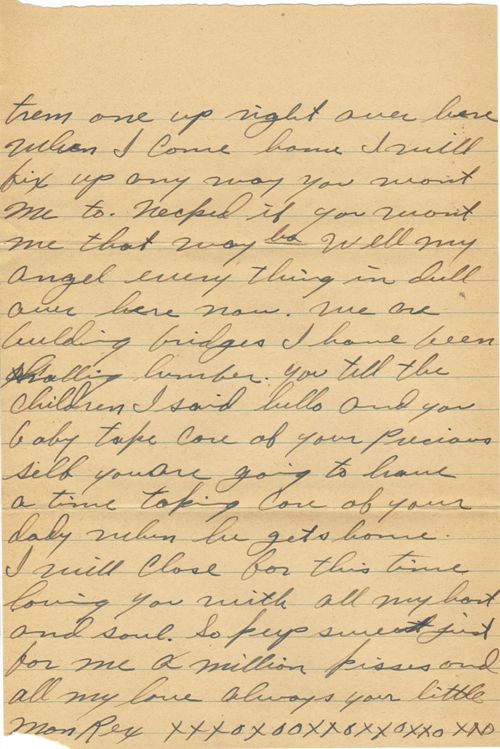 trem one up right over here
When I Come home I will
fix up any way you wont
me to. Necked if you wont
me that way ha Well my
angel every thing in dull
over here now. We are
building bridges I have been
halling lumber. you tell the
Children I said hello and you
baby take Care of your Precious
self you are going to have
a time taking Care of your
dady when he gets home.
I will Close for this time
loving you with all my hart
and soul. So keep sweet just
for me a million kisses and
all my love always your little
Man Rex XXXOXOOXXOXXOXXOXXO